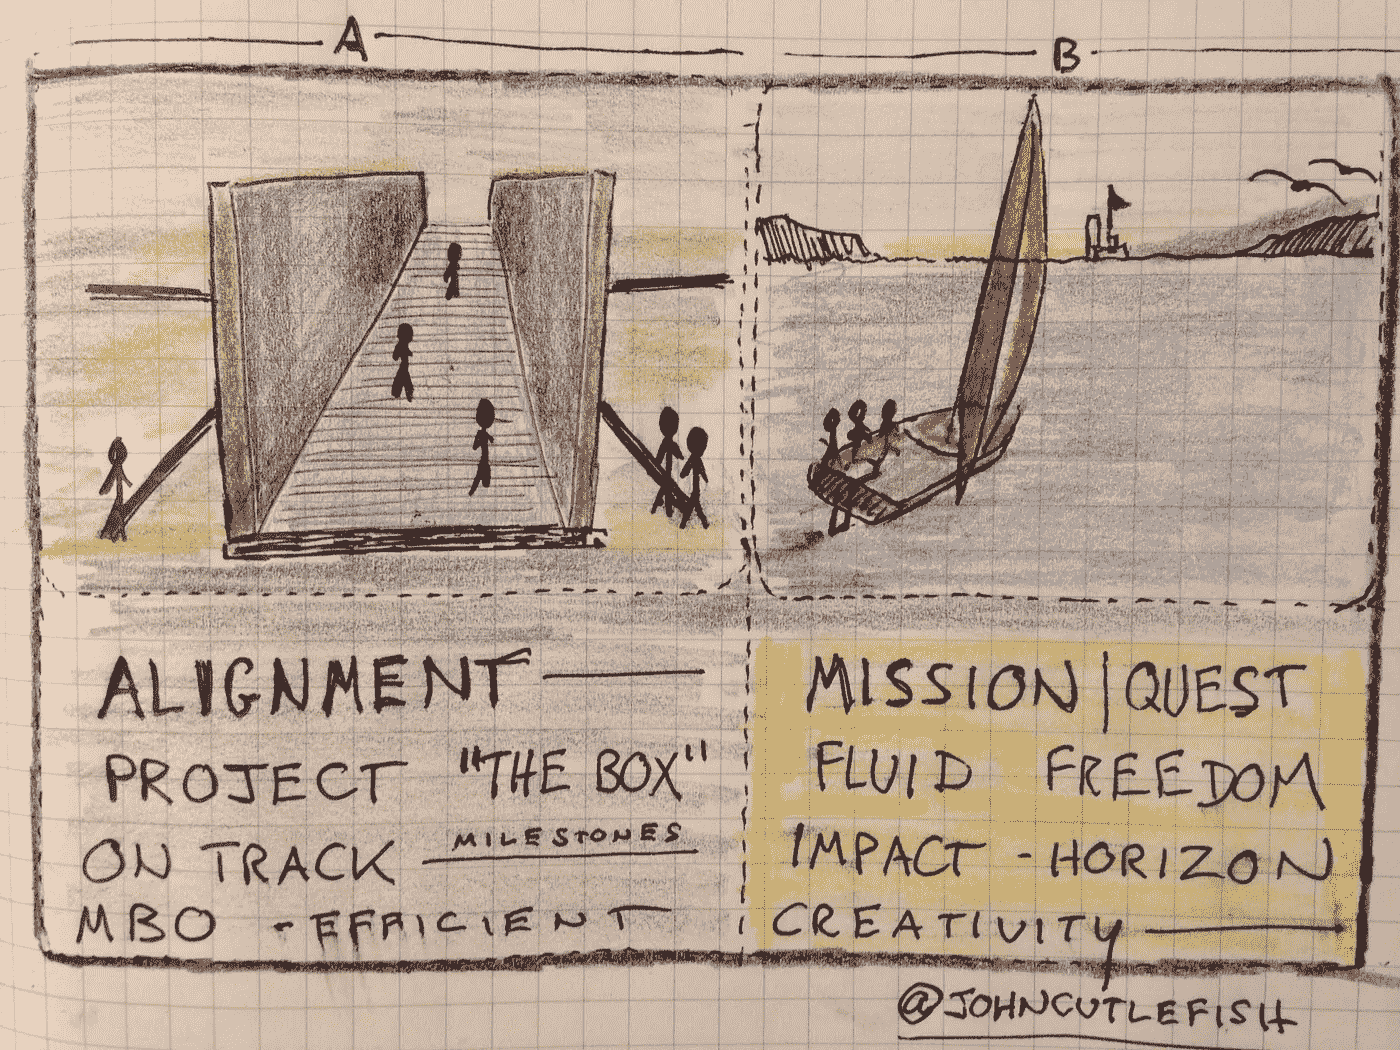 A
B
ALIGNMENT
PROJECT "THE BOX"
ON TRACK MILESTONES
MBO - EFFICIENT
MISSION | QUEST
FLUID FREEDOM
IMPACT - HORIZON
CREATIVITY
@JOHNCUTLEFISH